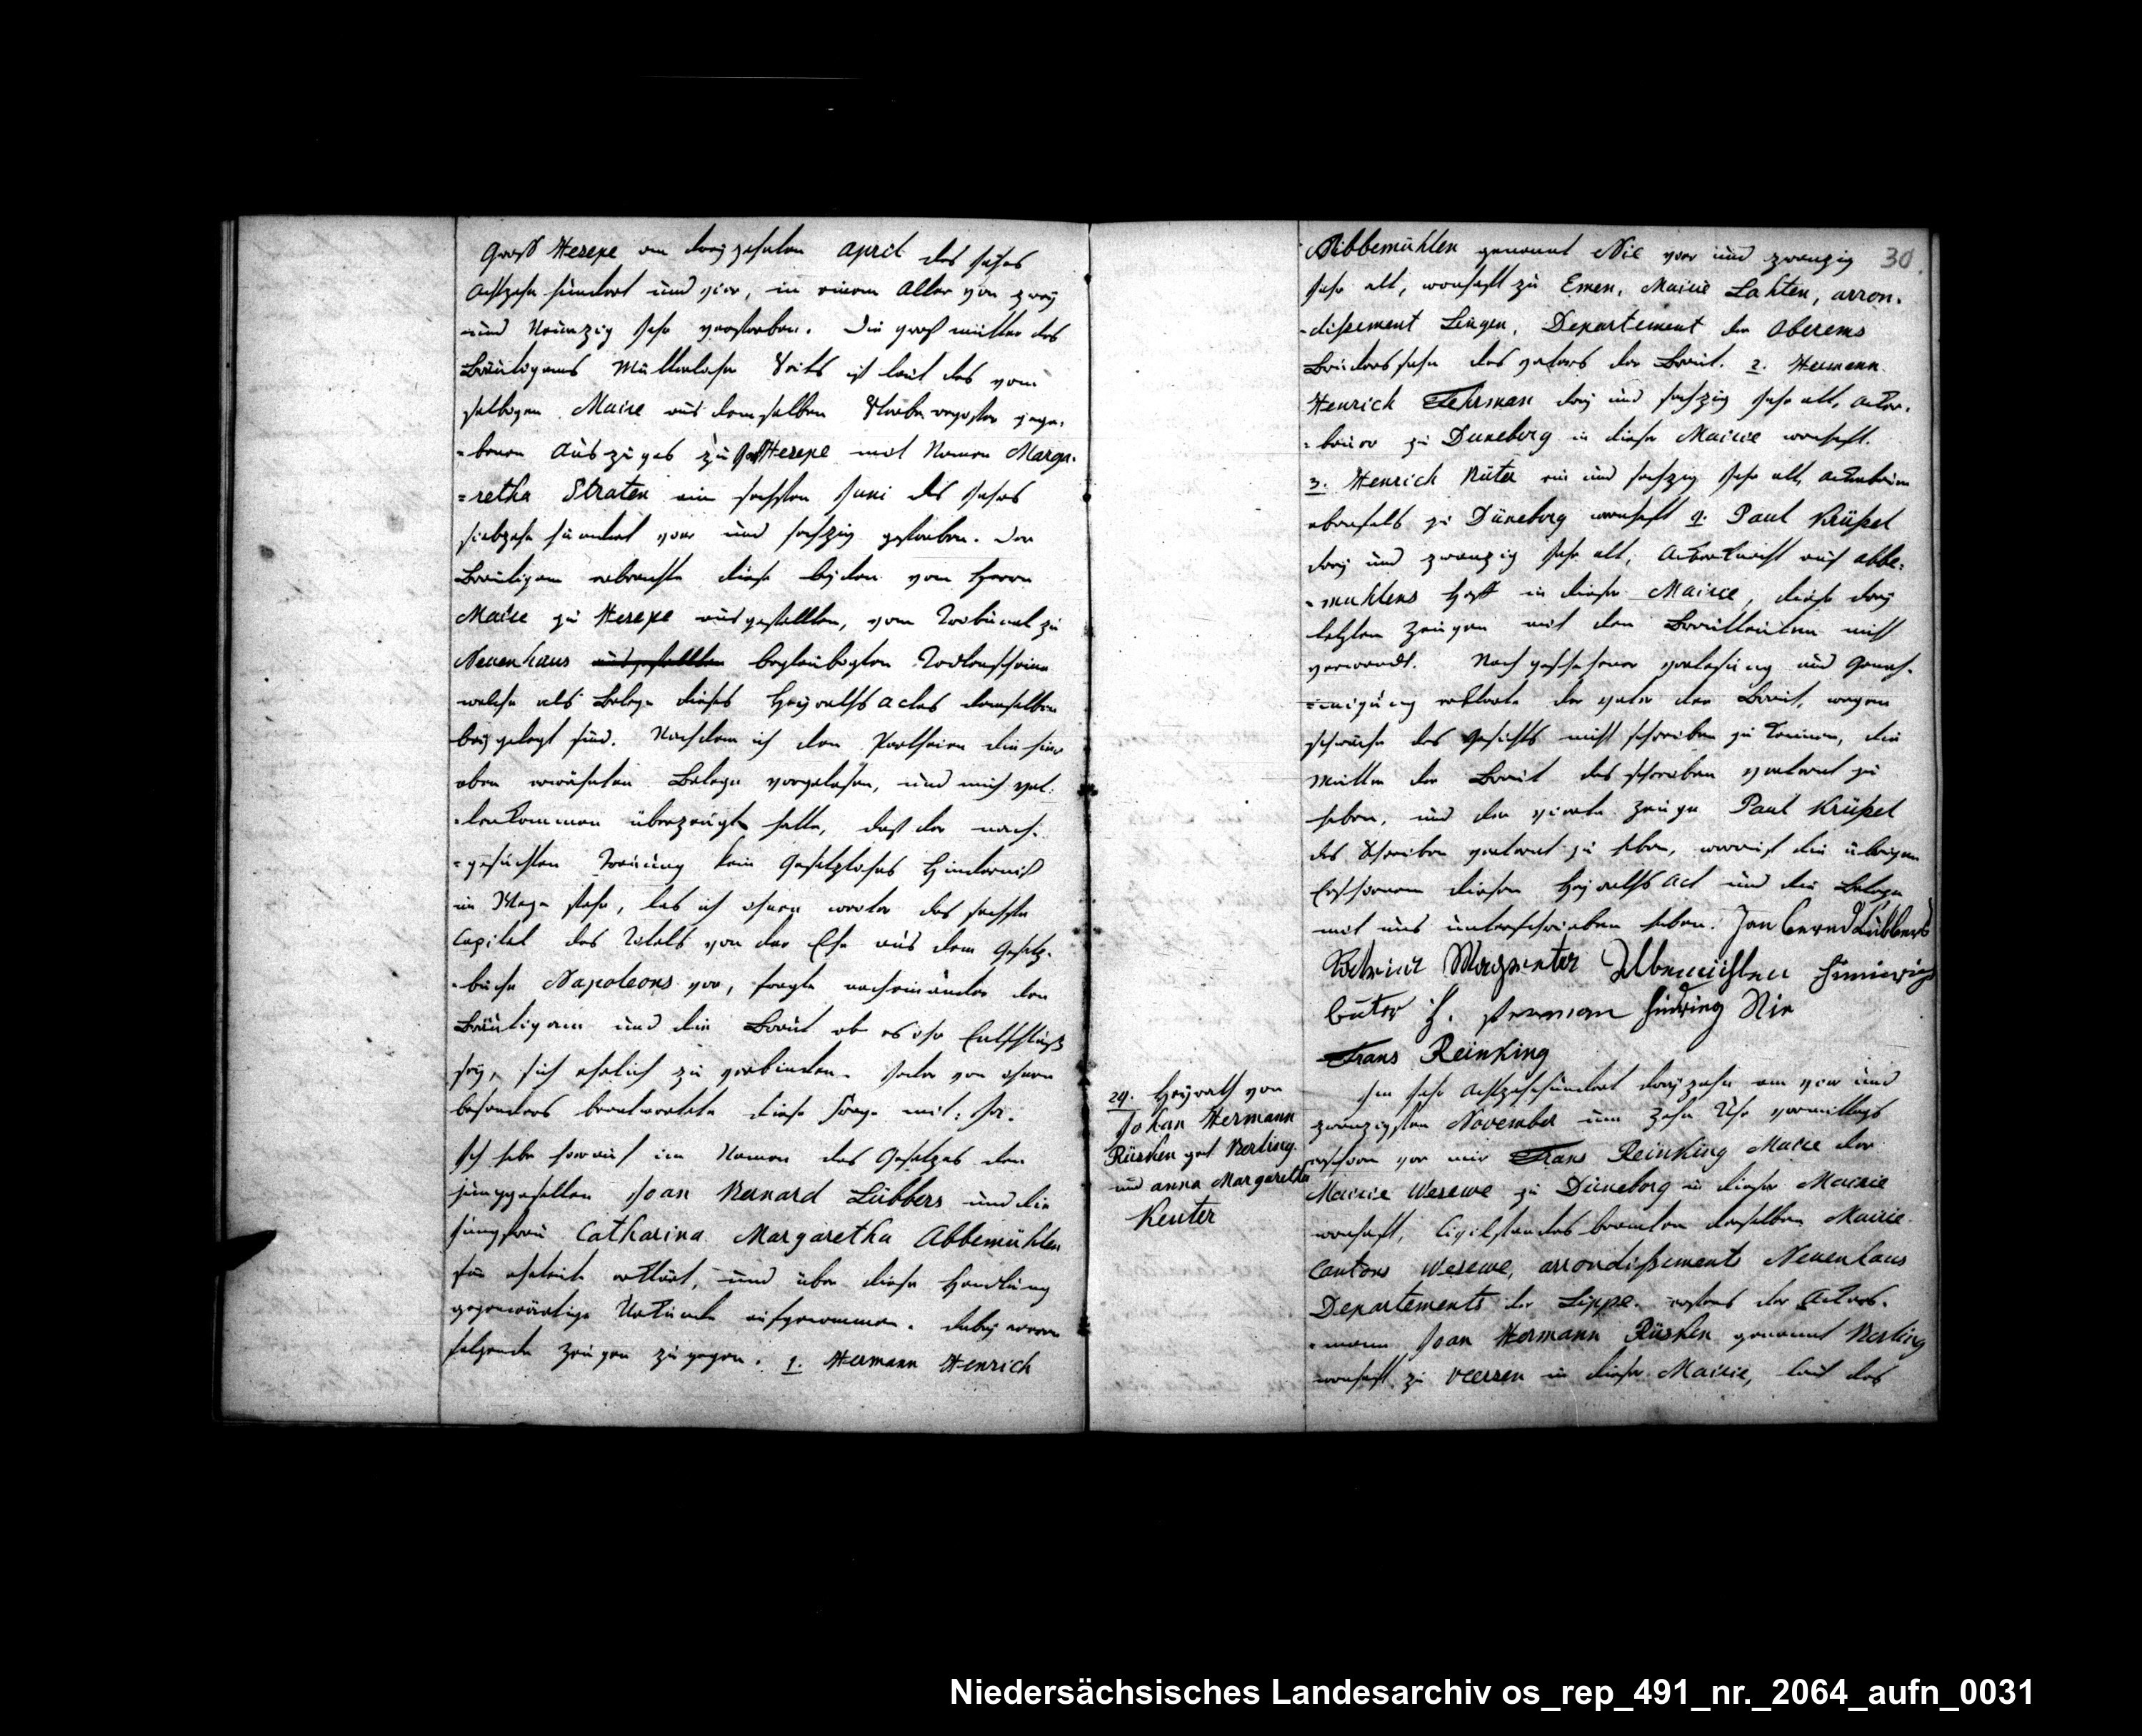 Groß Hesepe am dreyzehnten April des Jahrs
Achtzehn hundert und vier, in einem Alter von zwey
und Neunzig Jahr verstorben. Die groß mutter des
Bräutigams Mütterlicher Seits ist laut des vom
selbigen Maire aus demselben Sterberegister gege-
-benen Auszuges zu Groß Hesepe mit Namen Marga-
=retha Straten am sechsten Juni des Jahrs
siebzehn hundert vier und sechzig gestorben. Der
Bräutigam überbrachte diese beyden vom Herrn
Maire zu Hesepe ausgestellten, vom Tribunal zu
Neuenhaus ausgestellten beglaubigten Todtenscheine
welche als Belege dieses Heyraths Actes demselben
bey gelegt sind. Nachdem ich den Partheien die hier
oben erwähnten Belege vorgelesen, und mich vol-
-lenkommen überzeugt hatte, daß der nach-
-gesuchten Trauung kein Gesetzliches Hinderniß
im Wege stehe, las ich ihnen weiter das sechste
Capitel des Titels von der Ehe aus dem Gesetz-
-buche Napoleons vor, fragte nacheinander den
Bräutigam und die Braut ob es ihr Entschluß
sey, sich ehelich zu verbinden. Jeder von ihnen
besonders beantwortete diese Frage mit: Ja.
Ich habe hierauf im Namen des Gesetzes den
Junggesellen Joan Bernard Lübbers und die
Jungfrau Catharina Margaretha Abbemühlen
für eheleute erklärt, und über diese Handlung
gegenwärtige Urkunde aufgenommen. dabey waren
folgende Zeugen zugegen. 1. Hermann Henrich
30.
Bibbemühlen genannt Nie vier und zwanzig
Jahr alt, wonhaft zu Emen, Mairie Lahten, arron-
-dißement Lingen, Departement der Oberems
Bruders sohn des vaters der Braut. 2. Hermann
Henrich Fehrman drey und sechzig Jahr alt, Acker-
-bauer zu Duneborg in dieser Mairie wonhaft.
3. Henrich Rüter ein und sechzig Jahr alt, Ackerbauer
ebenfals zu Düneborg wonhaft 4. Paul Krüßel
drey und zwanzig Jahr alt, Ackerknecht auf abbe-
-muhlens Hoff in dieser Mairie, diese drey
letzten Zeugen mit den Brautleuten nicht
verwandt. Nach geschehener vorlesung und Geneh-
=migung erklärte der vater der Braut, wegen
schwäche des Gesichts nicht schreiben zu können, die
Mutter der Braut das schreiben verlernt zu
haben, und der vierte Zeuge Paul Krüßel
das Schreiben verlernt zu haben, worauf die übrigen
Erschienenen diesen Heyraths Act und die Belege
mit uns unterschrieben haben. Jan Berend Lübbers
Abbemühlen
Nie
Frans Reinking
29. Heyrath von
Johan Hermann
Rüsken gnt Berling
und anna Margaretha
Reuter
Im Jahr Achtzehnhundert dreyzehn am vier und
zwanzigsten November um Zehn Uhr vormittags
erschien vor mir Frans Reinking Maire der
Mairie Wesewe zu Düneborg in dieser Mairie
wonhaft, Civilstandes beamten derselben Mairie
Cantons Wesewe, arrondißements Neuenhaus
Departements der Lippe. erstens der Ackers-
-mann Joan Hermann Rüsken genannt Berling
wonhaft zu Versen in dieser Mairie, laut des
Niedersächsisches Landesarchiv os_rep_491_nr._2064_aufn_0031